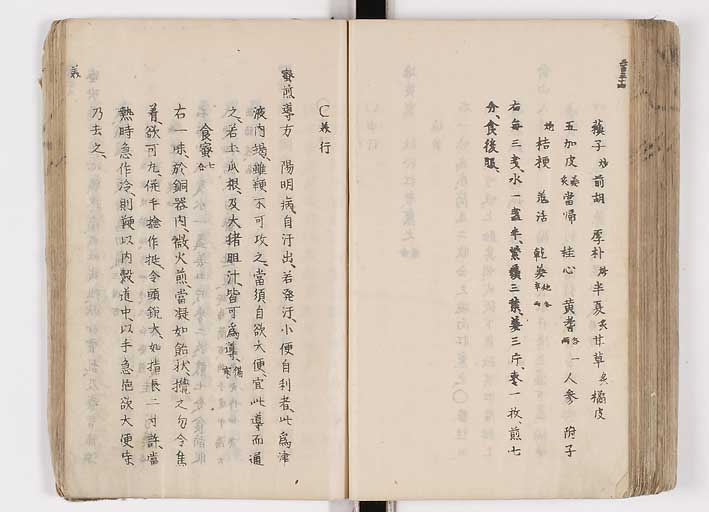 蘓子 前胡 厚朴 半夏 甘草 橘皮
五加皮 當帰 桂心 黄耆 人參 附子
桔梗 羌活 乾姜
右毎三戔、水一盞半、紫蘓三葉、姜三片、枣一枚、煎七
分、食後服
○義行
蜜煎導方 陽明病、自汗出、若発汗、小便自利者、此為津
液内竭、雖鞕不可攻之、當須自欲大便、宜此導而通
之、若土瓜根、及大猪胆汁、皆可為導
食蜜七合
右一味、於銅器内、微火煎、當凝如飴状、攪之勿令焦
着、欲可丸、併手捻作挺、令頭鋭、大如指、長二寸許、當
熱時急作、冷則鞕、以内穀道中、以手急抱、欲大便時
乃去之
義